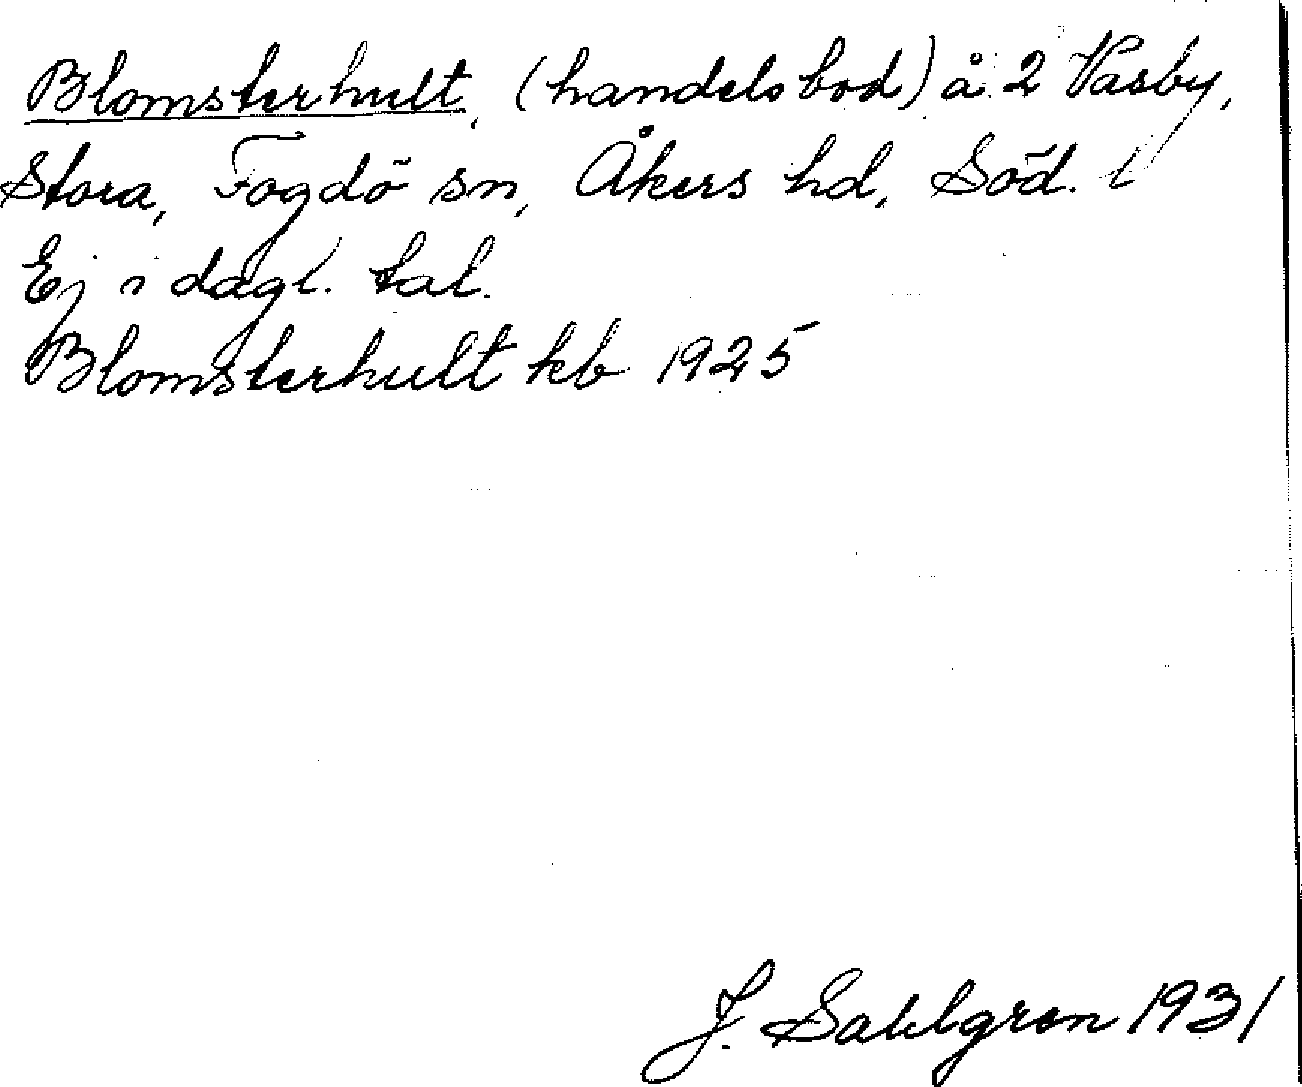 Blomsterhult, (handelsbod) å 2 Väsby,
Stora, Fogdö sn, Åkers hd, Söd. l
Ej i dagl. tal.
Blomsterhult kb 1925
J. Sahlgren 1931